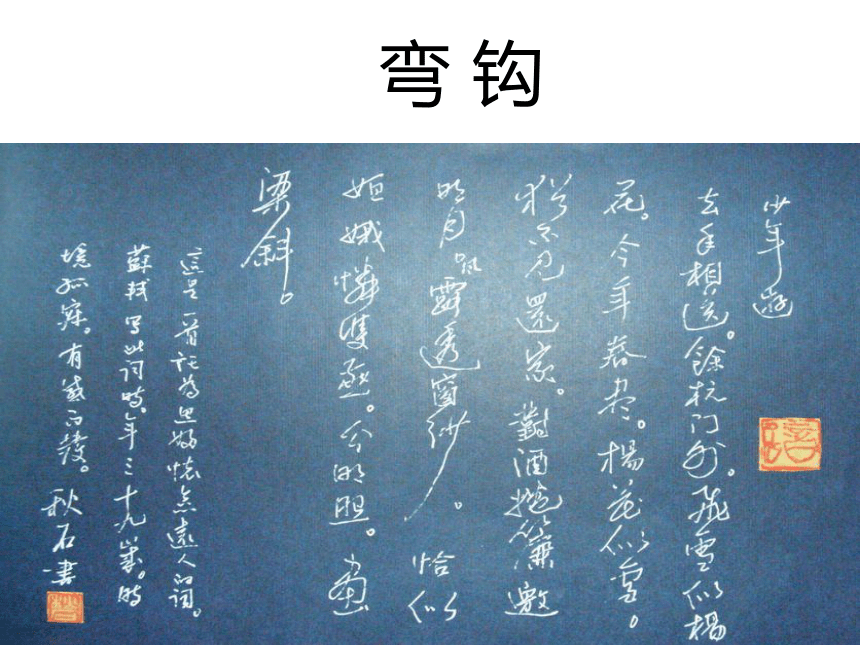 弯钩
少年游
去年相送。餘杭门外。飛雪似楊
花。今年春尽。楊花似雪。
猶不见還家。對酒捲簾邀
明月。風露透窗纱。恰似
姮娥憐雙燕。分明照。畫
梁斜。
這是一首託为思婦懷念遠人的词。
蘇軾写此词時。年三十九歲。時
境孤寂。有感而發。
秋石書